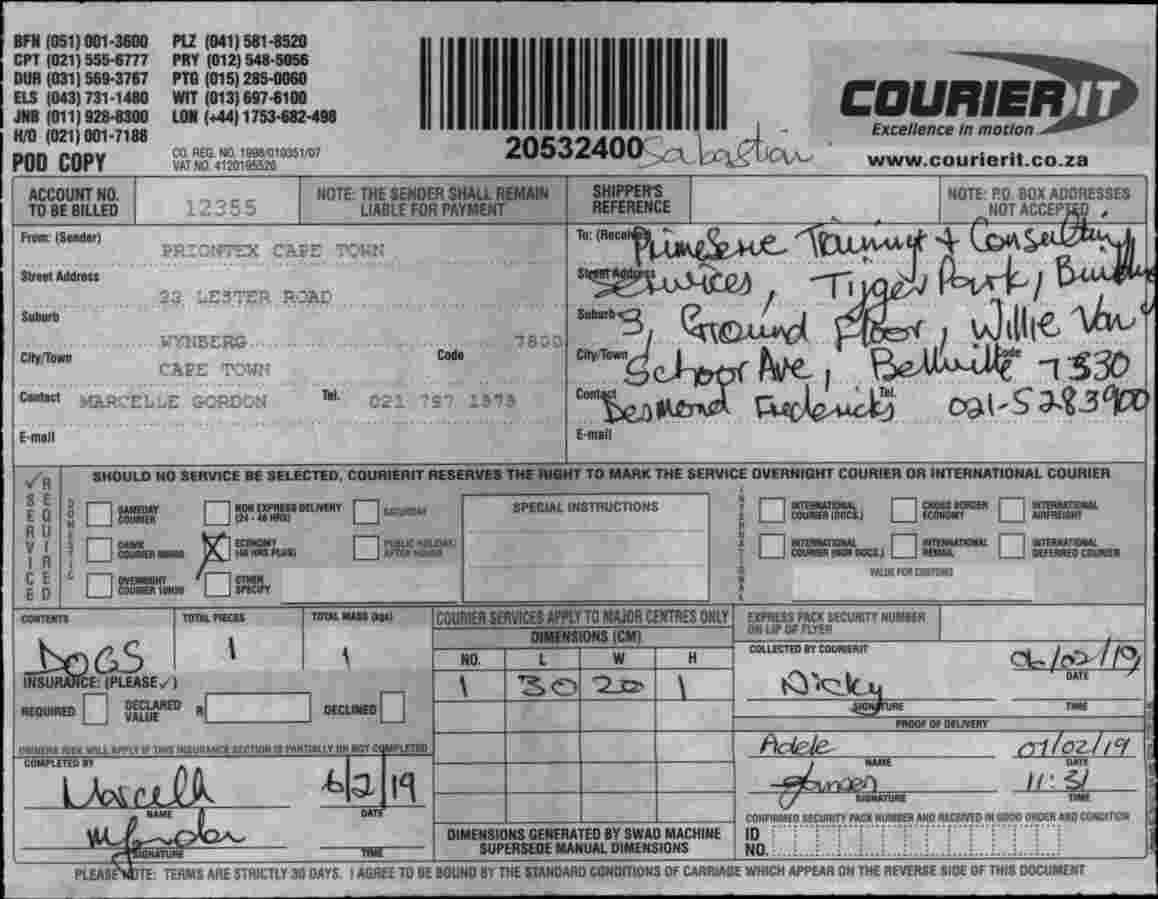 BFN (051) 001-3600 PLZ (041) 581-8520
CPT (021) 555-6777 PRY (012) 548-5056
DUR (031) 569-3767 PTG (015) 285-0060
ELS (043) 731-1480 WIT (013) 697-6100
JNB (011) 928-8300 LON (+44) 1753-682-498
H/O (021) 001-7188
POD COPY
CO. REG. NO. 1998/010351/07
VAT NO. 4120195520
20532400 Sabastian
COURIER IT
Excellence in motion
www.courierit.co.za
ACCOUNT NO. TO BE BILLED 12355
NOTE: THE SENDER SHALL REMAIN LIABLE FOR PAYMENT
SHIPPER'S REFERENCE
NOTE: P.O. BOX ADDRESSES NOT ACCEPTED
From: (Sender) PRIONTEX CAPE TOWN
Street Address 23 LESTER ROAD
Suburb WYNBERG 7800
City/Town CAPE TOWN Code
Contact MARCELLE GORDON Tel. 021 797 1373
E-mail
To: PrimeServe Training & Consulting
Street Address Services, Tijger Park, Building
Suburb 3, Ground Floor, Willie Van
City/Town Schoor Ave, Bellville Code 7530
Contact Desmond Fredericks Tel. 021-5283900
E-mail
SHOULD NO SERVICE BE SELECTED, COURIERIT RESERVES THE RIGHT TO MARK THE SERVICE OVERNIGHT COURIER OR INTERNATIONAL COURIER
✓ SERVICE REQUIRED
DOMESTIC
SAMEDAY COURIER
NON EXPRESS DELIVERY (24 - 48 HRS)
SATURDAY
ECONOMY (48 HRS PLUS)
PUBLIC HOLIDAY/ AFTER HOURS
OVERNIGHT COURIER 10H30
OTHER SPECIFY
SPECIAL INSTRUCTIONS
INTERNATIONAL
INTERNATIONAL COURIER (DOCS.)
CROSS BORDER ECONOMY
INTERNATIONAL AIRFREIGHT
INTERNATIONAL COURIER (NON DOCS.)
INTERNATIONAL REMAIL
INTERNATIONAL DEFERRED COURIER
VALUE FOR CUSTOMS
CONTENTS DOGS
TOTAL PIECES 1
TOTAL MASS (kgs) 1
INSURANCE: (PLEASE ✓)
REQUIRED DECLARED VALUE R DECLINED
OWNERS RISK WILL APPLY IF THIS INSURANCE SECTION IS PARTIALLY OR NOT COMPLETED
COMPLETED BY
Marcell 6/2/19
NAME DATE
SIGNATURE TIME
COURIER SERVICES APPLY TO MAJOR CENTRES ONLY
DIMENSIONS (CM)
NO. L W H
1 30 20 1
DIMENSIONS GENERATED BY SWAD MACHINE
SUPERSEDE MANUAL DIMENSIONS
EXPRESS PACK SECURITY NUMBER
ON LIP OF FLYER
COLLECTED BY COURIERIT
Nicky 06/02/19
DATE
SIGNATURE TIME
PROOF OF DELIVERY
Adele 07/02/19
NAME DATE
11:31
SIGNATURE TIME
CONFIRMED SECURITY PACK NUMBER AND RECEIVED IN GOOD ORDER AND CONDITION
ID NO.
PLEASE NOTE: TERMS ARE STRICTLY 30 DAYS. I AGREE TO BE BOUND BY THE STANDARD CONDITIONS OF CARRIAGE WHICH APPEAR ON THE REVERSE SIDE OF THIS DOCUMENT